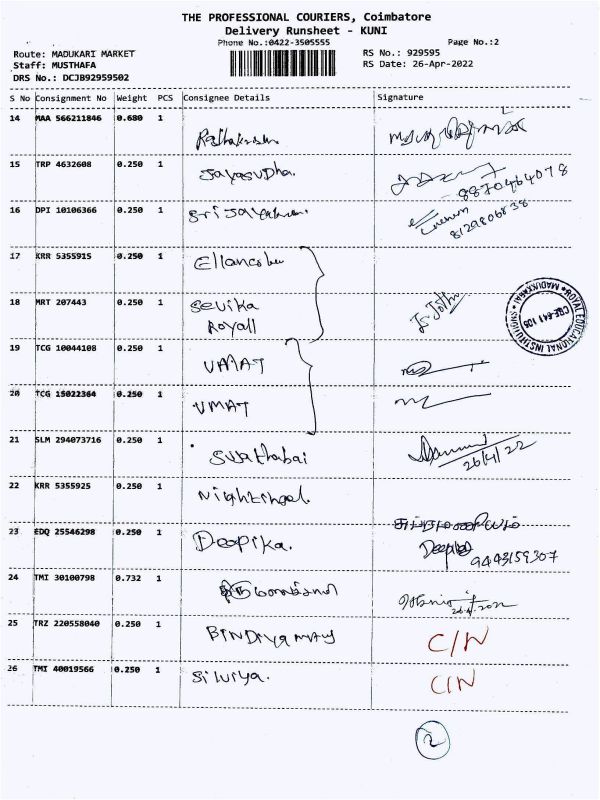 THE PROFESSIONAL COURIERS, Coimbatore
Delivery Runsheet - KUNI
Phone No.:0422-3505555 Page No.:2
Route: MADUKARI MARKET RS No.: 929595
Staff: MUSTHAFA RS Date: 26-Apr-2022
DRS No.: DCJB92959502
S No Consignment No Weight PCS Consignee Details Signature
14 MAA 566211846 0.680 1
15 TRP 4632608 0.250 1 Jayasudha.
8870464078
16 DPI 10106366 0.250 1
8129806838
17 KRR 5355915 0.250 1
18 MRT 207443 0.250 1 Sevika
Royall
19 TCG 10044108 0.250 1 VMAT
20 TCG 15022364 0.250 1 VMAT
21 SLM 294073716 0.250 1 Swathabai
26/4/22
22 KRR 5355925 0.250 1 Nightingal.
23 EDQ 25546298 0.250 1 Deepika. Deepika
9443159307
24 TMI 30100798 0.732 1
25 TRZ 220558040 0.250 1 BINDIYA MAY C/N
26 TMI 40019566 0.250 1 Silviya. C/N
2